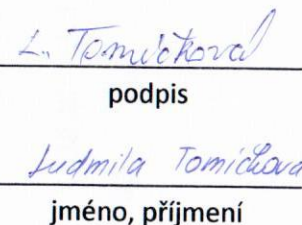 L. Tomíčková
podpis
Ludmila Tomíčková
jméno, příjmení